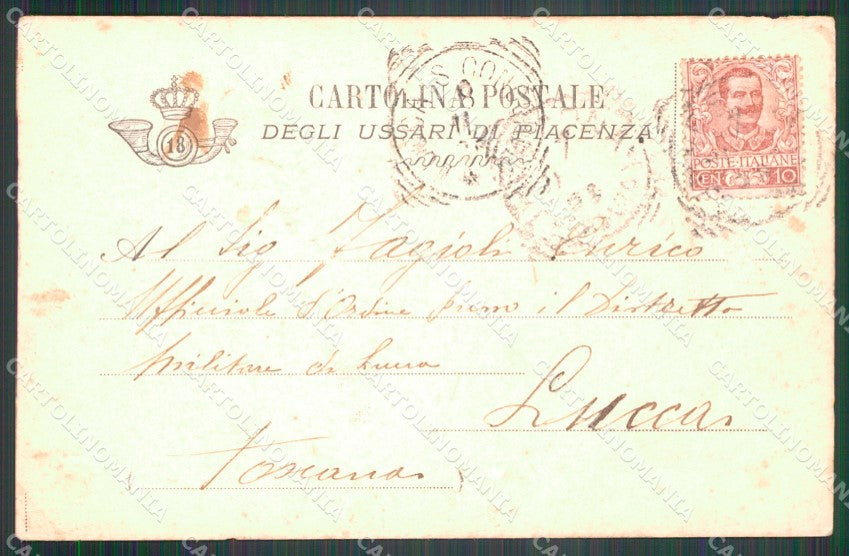 CARTOLINA POSTALE
DEGLI USSARI DI PIACENZA
18
POSTE ITALIANE
CENT. 10
Al Sig Fagioli Enrico
Ufficiale d'Ordine presso il Distretto
Militare di Lucca
Lucca
(Toscana)
CARTOLINOMANIA